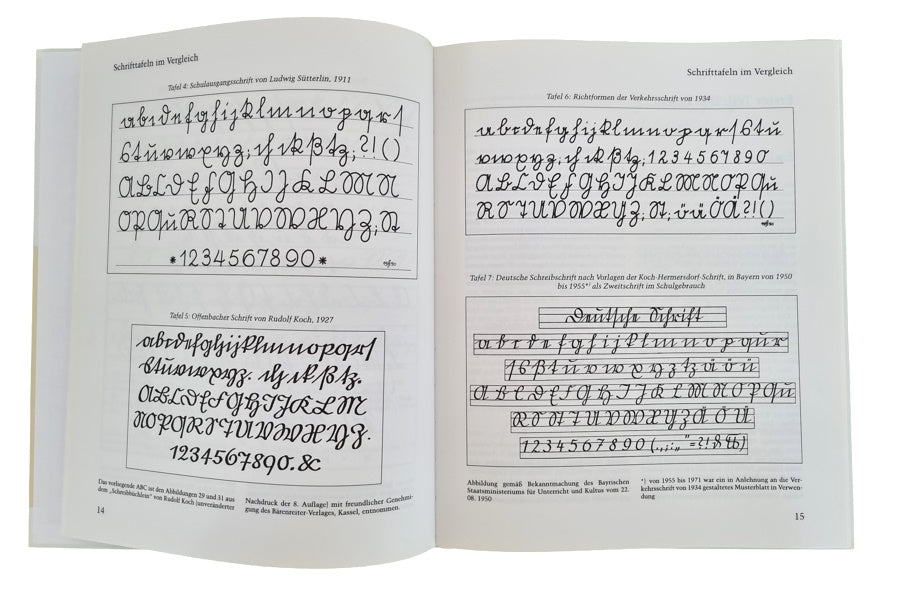 Schrifttafeln im Vergleich
Tafel 4: Schulausgangsschrift von Ludwig Sütterlin, 1911
a b c d e f g h i j k l m n o p q r ſ
s t u v w x y z ; ch ck ß tz ; ? ! ( )
A B C D E F G H I J K L M N
O P Qu R S T U V W X Y Z ; St
* 1 2 3 4 5 6 7 8 9 0 *
Tafel 5: Offenbacher Schrift von Rudolf Koch, 1927
a b c d e f g h i j k l m n o p q r ſ
s t u v w x y z . ch ck ß tz .
A B C D E F G H I J K L M
N O P Q R S T U V W X Y Z .
1 2 3 4 5 6 7 8 9 0 . &c
Das vorliegende ABC ist den Abbildungen 29 und 31 aus
dem „Schreibbüchlein“ von Rudolf Koch (unveränderter
Nachdruck der 8. Auflage) mit freundlicher Genehmi-
gung des Bärenreiter-Verlages, Kassel, entnommen.
14
Schrifttafeln im Vergleich
Tafel 6: Richtformen der Verkehrsschrift von 1934
a b c d e f g h i j k l m n o p q r ſ s t u
v w x y z ; ch ck ß tz ; 1 2 3 4 5 6 7 8 9 0
A B C D E F G H I J K L M N O P Qu
R S T U V W X Y Z ; St ; ö ü Ö Ä ? ! ( )
Tafel 7: Deutsche Schreibschrift nach Vorlagen der Koch-Hermersdorf-Schrift, in Bayern von 1950
bis 1955*⁾ als Zweitschrift im Schulgebrauch
Deutsche Schrift
a b c d e f g h i j k l m n o p qu r
ſ s ß t u v w x y z tz ä ö ü
A B C D E F G H I J K L M N O P Qu
R S St T U V W X Y Z Ä Ö Ü
1 2 3 4 5 6 7 8 9 0
Abbildung gemäß Bekanntmachung des Bayrischen
Staatsministeriums für Unterricht und Kultus vom 22.
08. 1950
*⁾ von 1955 bis 1971 war ein in Anlehnung an die Ver-
kehrsschrift von 1934 gestaltetes Musterblatt in Verwen-
dung
15